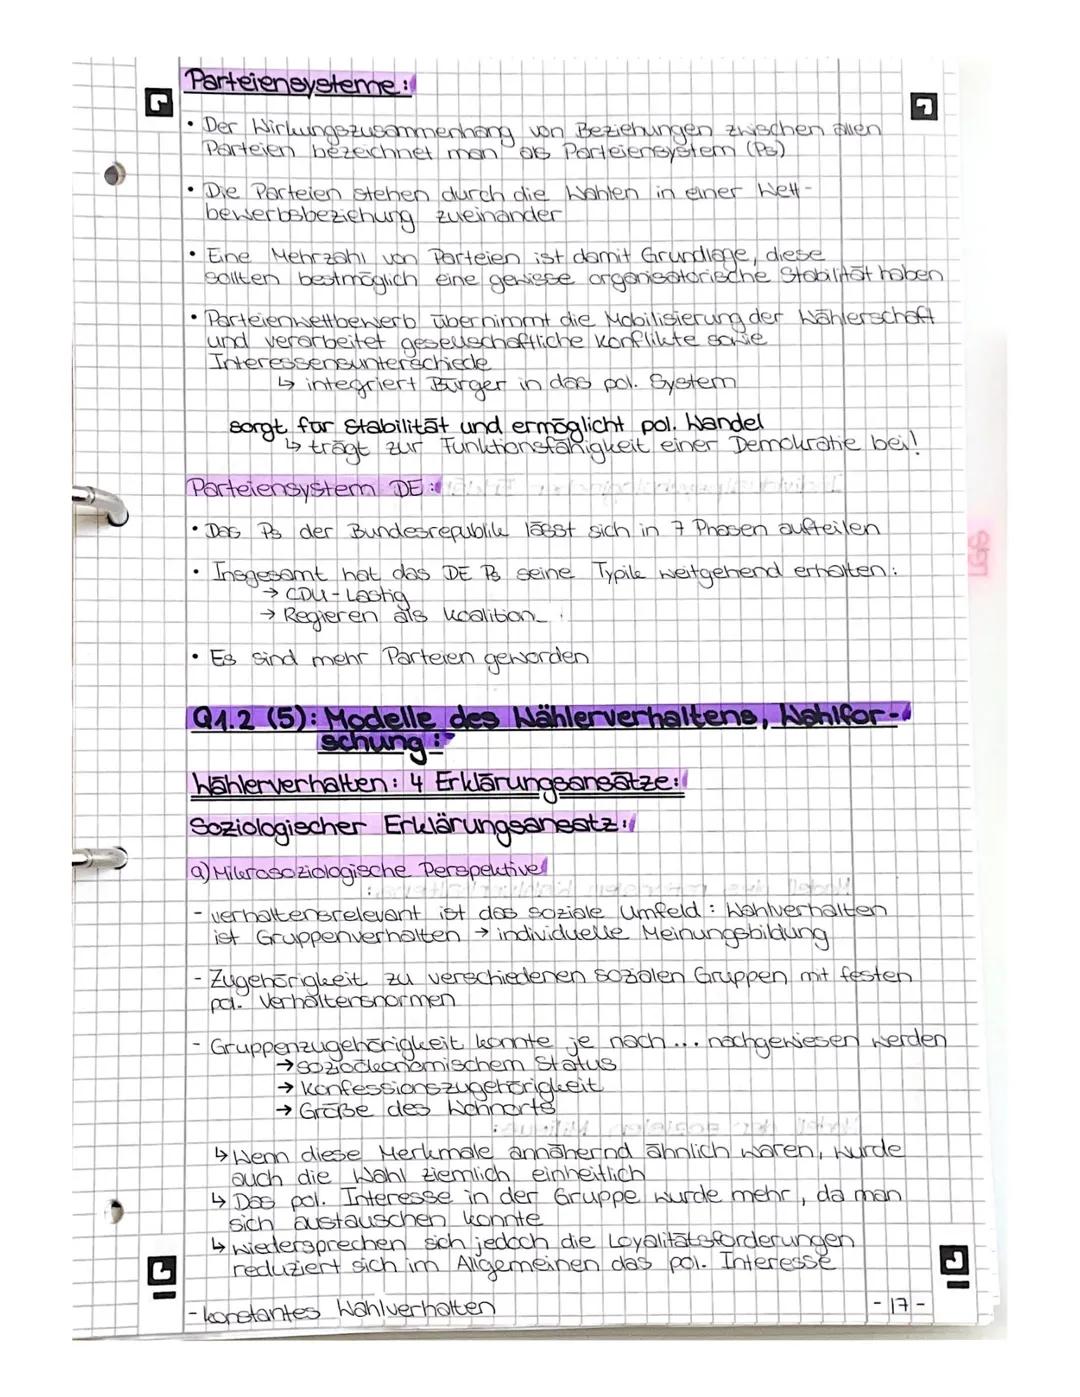 Parteiensysteme:
• Der Wirkungszusammenhang von Beziehungen zwischen allen
Parteien bezeichnet man als Parteiensystem (Ps)
• Die Parteien stehen durch die Wahlen in einer Wett-
bewerbsbeziehung zueinander
• Eine Mehrzahl von Parteien ist damit Grundlage, diese
sollten bestmöglich eine gewisse organisatorische Stabilität haben
• Parteienwettbewerb übernimmt die Mobilisierung der Wählerschaft
und verarbeitet gesellschaftliche Konflikte sowie
Interessensunterschiede
↳ integriert Bürger in das pol. System
sorgt für Stabilität und ermöglicht pol. Wandel
↳ trägt zur Funktionsfähigkeit einer Demokratie bei!
Parteiensystem DE:
• Das Ps der Bundesrepublik lässt sich in 7 Phasen aufteilen
• Insgesamt hat das DE Ps seine Typik weitgehend erhalten:
→ CDU-Lastig
→ Regieren als Koalition
• Es sind mehr Parteien geworden
Q1.2 (5): Modelle des Wählerverhaltens, Wahlfor-
schung:
Wählerverhalten: 4 Erklärungsansätze:
Soziologischer Erklärungsansatz:
a) Mikrosoziologische Perspektive
- verhaltensrelevant ist das soziale Umfeld: Wahlverhalten
ist Gruppenverhalten → individuelle Meinungsbildung
- Zugehörigkeit zu verschiedenen sozialen Gruppen mit festen
pol. Verhaltensnormen
- Gruppenzugehörigkeit konnte je nach... nachgewiesen werden
→ sozioökonomischem Status
→ Konfessionszugehörigkeit
→ Größe des Wohnorts
↳ Wenn diese Merkmale annähernd ähnlich waren, wurde
auch die Wahl ziemlich einheitlich
↳ Das pol. Interesse in der Gruppe wurde mehr, da man
sich austauschen konnte
↳ wiedersprechen sich jedoch die Loyalitätsforderungen
reduziert sich im Allgemeinen das pol. Interesse
- konstantes Wahlverhalten
- 17 -